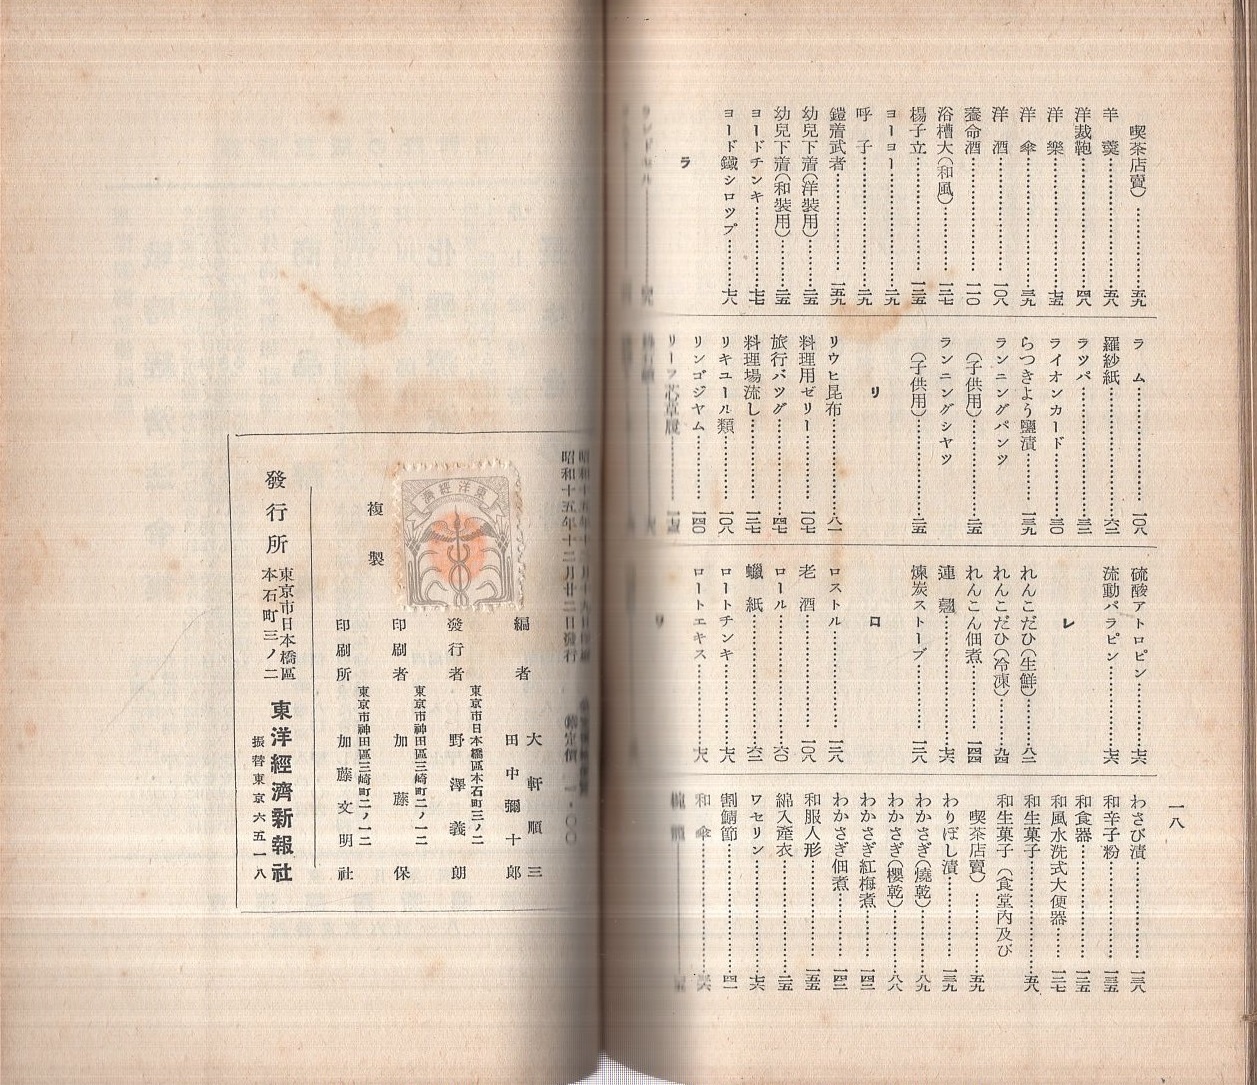 一八
喫茶店賣)…………五九
羊羹…………五八
洋裁鞄…………四八
洋樂…………七五
洋傘…………三九
洋酒…………一〇八
養命酒…………一一〇
浴槽大(和風)…………一二七
楊子立…………一三五
ヨーヨー…………二九
呼子…………二九
鎧着武者…………一五九
幼兒下着(洋裝用)…………二五
幼兒下着(和裝用)…………二五
ヨードチンキ…………七七
ヨード鐵シロツプ…………七八
ラ
ラム…………一〇八
羅紗紙…………六二
ラツパ…………三三
ライオンカード…………三〇
らつきよう鹽漬…………一三九
ランニングパンツ
(子供用)…………二五
ランニングシヤツ
(子供用)…………二五
リ
リウヒ昆布…………八一
料理用ゼリー…………一〇七
旅行バツグ…………四七
料理場流し…………一二七
リキユール類…………一〇八
リンゴジヤム…………一四〇
リーフ芯草履
硫酸アトロピン…………七六
流動パラピン…………七六
レ
れんこだひ(生鮮)…………八三
れんこだひ(冷凍)…………九四
れんこん佃煮…………一四四
連翹…………七六
煉炭ストーブ…………一二八
ロ
ロストル…………一二八
老酒…………一〇八
ロール…………六〇
蠟紙…………六二
ロートチンキ…………七八
ロートエキス…………七八
ワ
わさび漬…………一三八
和辛子粉…………一三五
和食器…………一二五
和風水洗式大便器…………一二七
和生菓子…………五八
和生菓子(食堂内及び
喫茶店賣)…………五九
わりぼし漬…………一三九
わかさぎ(燒乾)…………八九
わかさぎ(櫻乾)…………八八
わかさぎ紅梅煮…………一四二
わかさぎ佃煮…………一四二
和服人形…………一五五
綿入產衣…………二五
ワセリン…………七六
割鯖節…………一四一
和傘
昭和十五年十二月十九日印刷
昭和十五年十二月廿二日發行
定價一・〇〇
編者
大軒順三
田中彌十郎
發行者
東京市日本橋區本石町三ノ二
野澤義朗
印刷者
東京市神田區三崎町二ノ一二
加藤保
印刷所
東京市神田區三崎町二ノ一二
加藤文明社
東洋經濟
複製
發行所
東京市日本橋區
本石町三ノ二
東洋經濟新報社
振替東京六五一八